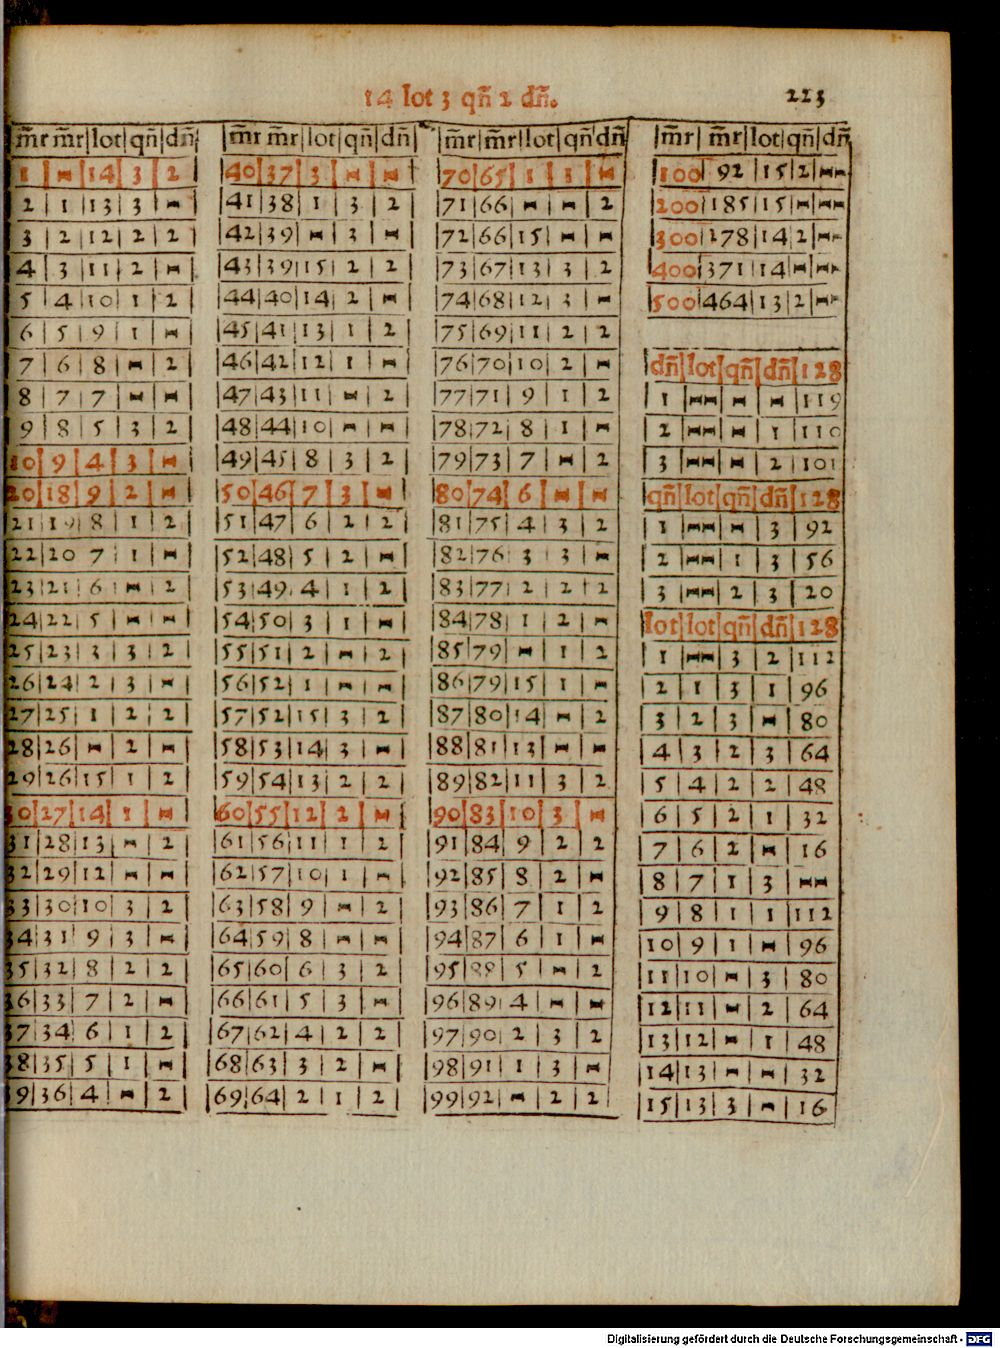 14 lot 3 qñ 2 dñ.
223
m̃r m̃r|lot|qñ|dñ
1 | - | 14 | 3 | 2
2 | 1 | 13 | 3 | -
3 | 2 | 12 | 2 | 2
4 | 3 | 11 | 2 | -
5 | 4 | 10 | 1 | 2
6 | 5 | 9 | 1 | -
7 | 6 | 8 | - | 2
8 | 7 | 7 | - | -
9 | 8 | 5 | 3 | 2
10 | 9 | 4 | 3 | -
20 | 18 | 9 | 2 | -
21 | 19 | 8 | 1 | 2
22 | 20 | 7 | 1 | -
23 | 21 | 6 | - | 2
24 | 22 | 5 | - | -
25 | 23 | 3 | 3 | 2
26 | 24 | 2 | 3 | -
27 | 25 | 1 | 2 | 2
28 | 26 | - | 2 | -
29 | 26 | 15 | 1 | 2
30 | 27 | 14 | 1 | -
31 | 28 | 13 | - | 2
32 | 29 | 12 | - | -
33 | 30 | 10 | 3 | 2
34 | 31 | 9 | 3 | -
35 | 32 | 8 | 2 | 2
36 | 33 | 7 | 2 | -
37 | 34 | 6 | 1 | 2
38 | 35 | 5 | 1 | -
39 | 36 | 4 | - | 2
m̃r m̃r|lot|qñ|dñ
40 | 37 | 3 | - | -
41 | 38 | 1 | 3 | 2
42 | 39 | - | 3 | -
43 | 39 | 15 | 2 | 2
44 | 40 | 14 | 2 | -
45 | 41 | 13 | 1 | 2
46 | 42 | 12 | 1 | -
47 | 43 | 11 | - | 2
48 | 44 | 10 | - | -
49 | 45 | 8 | 3 | 2
50 | 46 | 7 | 3 | -
51 | 47 | 6 | 2 | 2
52 | 48 | 5 | 2 | -
53 | 49 | 4 | 1 | 2
54 | 50 | 3 | 1 | -
55 | 51 | 2 | - | 2
56 | 52 | 1 | - | -
57 | 52 | 15 | 3 | 2
58 | 53 | 14 | 3 | -
59 | 54 | 13 | 2 | 2
60 | 55 | 12 | 2 | -
61 | 56 | 11 | 1 | 2
62 | 57 | 10 | 1 | -
63 | 58 | 9 | - | 2
64 | 59 | 8 | - | -
65 | 60 | 6 | 3 | 2
66 | 61 | 5 | 3 | -
67 | 62 | 4 | 2 | 2
68 | 63 | 3 | 2 | -
69 | 64 | 2 | 1 | 2
m̃r|m̃r|lot|qñ|dñ
70 | 65 | 1 | 1 | -
71 | 66 | - | - | 2
72 | 66 | 15 | - | -
73 | 67 | 13 | 3 | 2
74 | 68 | 12 | 3 | -
75 | 69 | 11 | 2 | 2
76 | 70 | 10 | 2 | -
77 | 71 | 9 | 1 | 2
78 | 72 | 8 | 1 | -
79 | 73 | 7 | - | 2
80 | 74 | 6 | - | -
81 | 75 | 4 | 3 | 2
82 | 76 | 3 | 3 | -
83 | 77 | 2 | 2 | 2
84 | 78 | 1 | 2 | -
85 | 79 | - | 1 | 2
86 | 79 | 15 | 1 | -
87 | 80 | 14 | - | 2
88 | 81 | 13 | - | -
89 | 82 | 11 | 3 | 2
90 | 83 | 10 | 3 | -
91 | 84 | 9 | 2 | 2
92 | 85 | 8 | 2 | -
93 | 86 | 7 | 1 | 2
94 | 87 | 6 | 1 | -
95 | 88 | 5 | - | 2
96 | 89 | 4 | - | -
97 | 90 | 2 | 3 | 2
98 | 91 | 1 | 3 | -
99 | 92 | - | 2 | 2
m̃r|m̃r|lot|qñ|dñ
100 | 92 | 15 | 2 | --
200 | 185 | 15 | - | --
300 | 278 | 14 | 2 | --
400 | 371 | 14 | - | --
500 | 464 | 13 | 2 | --
dñ|lot|qñ|dñ|128
1 | -- | - | - | 119
2 | -- | - | 1 | 110
3 | -- | - | 2 | 101
qñ|lot|qñ|dñ|128
1 | -- | - | 3 | 92
2 | -- | 1 | 3 | 56
3 | -- | 2 | 3 | 20
lot|lot|qñ|dñ|128
1 | -- | 3 | 2 | 112
2 | 1 | 3 | 1 | 96
3 | 2 | 3 | - | 80
4 | 3 | 2 | 3 | 64
5 | 4 | 2 | 2 | 48
6 | 5 | 2 | 1 | 32
7 | 6 | 2 | - | 16
8 | 7 | 1 | 3 | --
9 | 8 | 1 | 1 | 112
10 | 9 | 1 | - | 96
11 | 10 | - | 3 | 80
12 | 11 | - | 2 | 64
13 | 12 | - | 1 | 48
14 | 13 | - | - | 32
15 | 13 | 3 | - | 16
Digitalisierung gefördert durch die Deutsche Forschungsgemeinschaft - DFG